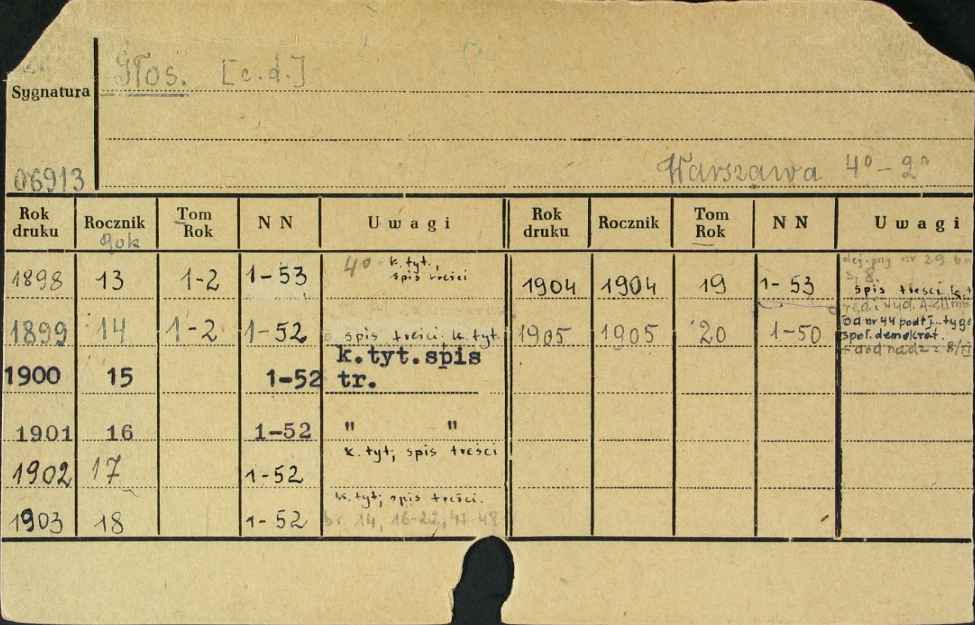 Głos. [c.d.]
Sygnatura
06913
Warszawa 4° - 2°
Rok druku Rocznik Tom Rok NN Uwagi Rok druku Rocznik Tom Rok NN Uwagi
Rok
1898 13 1-2 1-53 4° k. tyt., spis treści
1904 1904 19 1-53 nr 29
spis treści
1899 14 1-2 1-52 spis treści k. tyt.
1905 1905 20 1-50 od nr 44 podt.
społ. demokrat.
1900 15 1-52 k.tyt.spis
tr.
1901 16 1-52 " "
1902 17 1-52 k. tyt, spis treści
1903 18 1-52 k. tyt, spis treści.
14, 16-22, 47 48